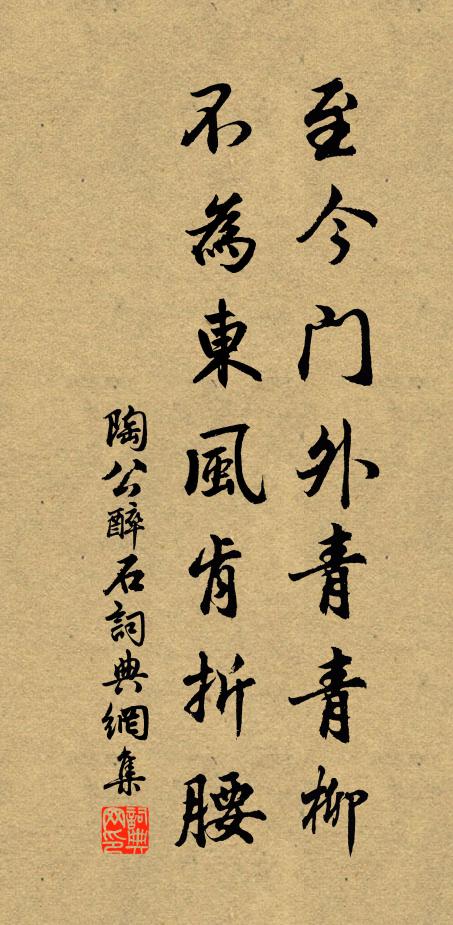 至今門外青青柳
不為東風肯折腰
陶公醉石詞典網集
詞典网印